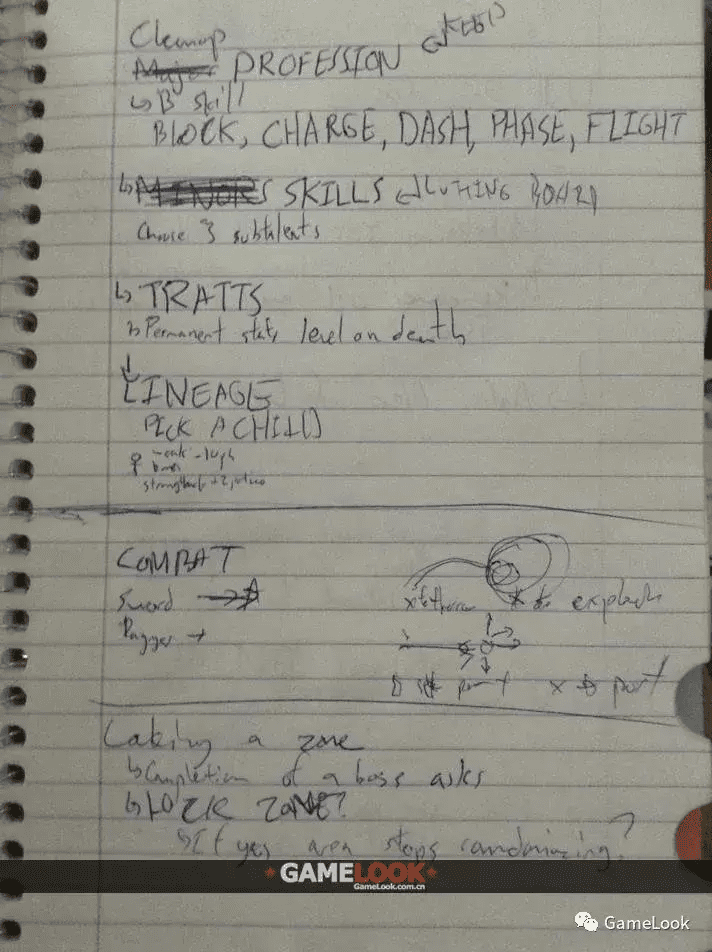 Cleanup
Major PROFESSION
↳ B skill
BLOCK, CHARGE, DASH, PHASE, FLIGHT
↳ MINORS SKILLS BOARD
Choose 3 subtalents
↳ TRAITS
↳ Permanent stats level on death
LINEAGE
PICK A CHILD
COMBAT
Sword
Dagger
x to explode
x to port
Locking a zone
↳ Completion of a boss asks
↳ LOCK ZONE?
↳ If yes area stops randomizing?
GAMELOOK
GameLook.com.cn
GameLook